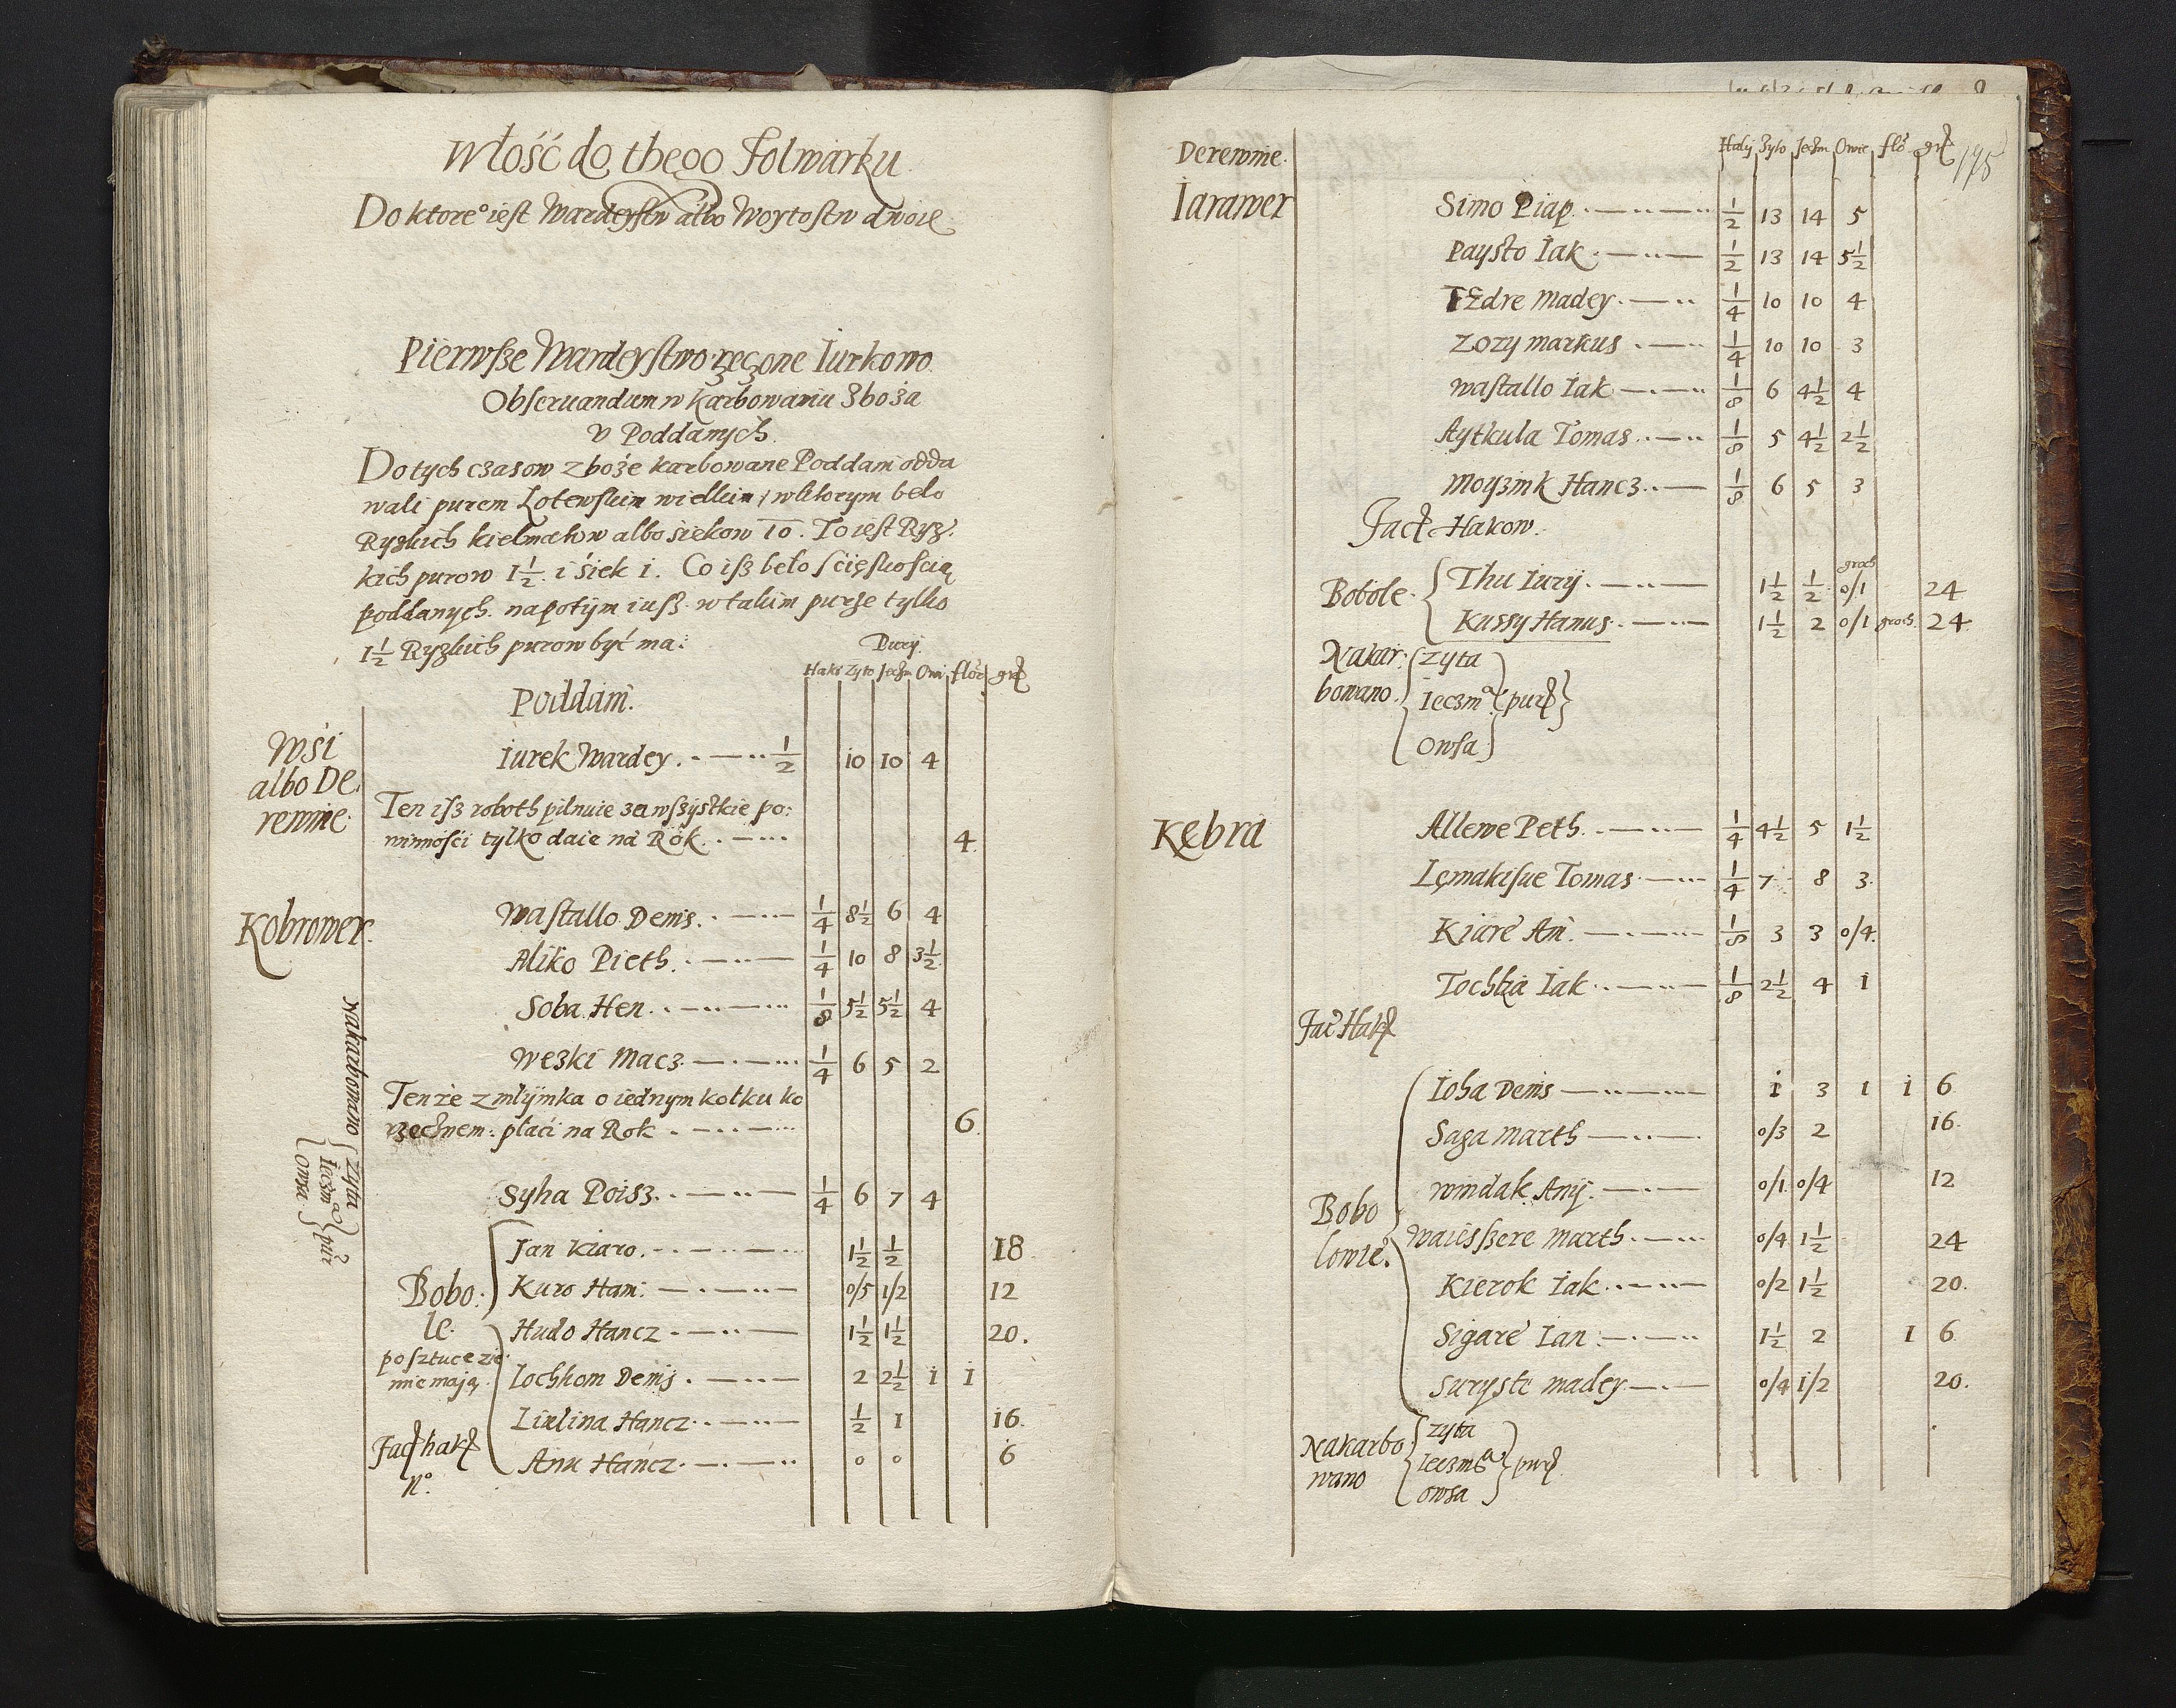 Włość do thego Folwarku
Do ktore° iest Wardeystw albo Woytostw dwoie
Pierwsze Wardeystwo rzeczone Iurkowo
Obseruandum w Karbowaniu Zboża
v Poddanych.
Do tych czasow zboże karbowane Poddani odda
wali purem Lotewskim wielkim / w ktorym beło
Ryzkich kielmetow albo siekow 10. To iest Ryz:
kich purow 1½ i siek 1. Co isz beło scięskoscią
poddanych. na potym iusz w takim purze tylko
1½ Ryzkich purow być ma:
Pury
Haki Zyto Jeczm Owi flor gr
Poddani.
Wsi
albo De,
rewnie.
Iurek Wardey. ½ 10 10 4
Ten isz roboth pilnuie za wszystkie po:
winnosci tylko daie na Rok. 4.
Kobrower.
Wastallo Denis. ¼ 8½ 6 4
Aliko Pieth. ¼ 10 8 3½
Soba Hen. ⅛ 5½ 5½ 4
Wezki Macz. ¼ 6 5 2
Tenże z młynka o iednym kołku ko
rzecznem: płaci na Rok 6.
Syha Poisz. ¼ 6 7 4
nakarbowano { Zyta Ieczma Owsa } pur
Bobo:
le.
po sztuce zie
mie mają.
Jan Kiaro. 1½ ½ 18
Kuro Han: 0/5 1/2 12
Hudo Hancz 1½ 1½ 20.
Lochhom Denis. 2 2½ 1 1
Liulina Hancz. ½ 1 16.
Ann Hancz. 0 0 6
Fac hak
n°.
175
Derewnie.
Haky Zyto Jeczm Owie flo gr
Iarawer
Simo Piap. ½ 13 14 5
Paysto Iak. ½ 13 14 5½
Tedre Madey. ¼ 10 10 4
Zozy Markus ¼ 10 10 3
Wastallo Iak ⅛ 6 4½ 4
Aytkula Tomas. ⅛ 5 4½ 2½
Moyzink Hancz. ⅛ 6 5 3
Fac Hakow.
groch
Bobole.
Thu Iury. 1½ ½ 0/1 24
Kussy Hanus. 1½ 2 0/1 groch. 24.
Nakar:
bowano.
{ Zyta
Ieczma } pur }
Owsa
Kębra
Allewe Peth. ¼ 4½ 5 1½
Lęmakisue Tomas. ¼ 7 8 3.
Kiare An. ⅛ 3 3 0/4.
Tochka Iak. ⅛ 2½ 4 1
Fac Hak
Bobo
lowie.
Ioha Denis 1 3 1 1 6
Saga Marth 0/3 2 16.
Windak Any. 0/1 0/4 12
Waiesszere Marth. 0/4 1½ 24
Kierok Iak. 0/2 1½ 20.
Sigare Ian. 1½ 2 1 6
Suryste Madey 0/4 1/2 20.
Nakarbo
wano
{ Zyta
Ieczma } pur.
Owsa